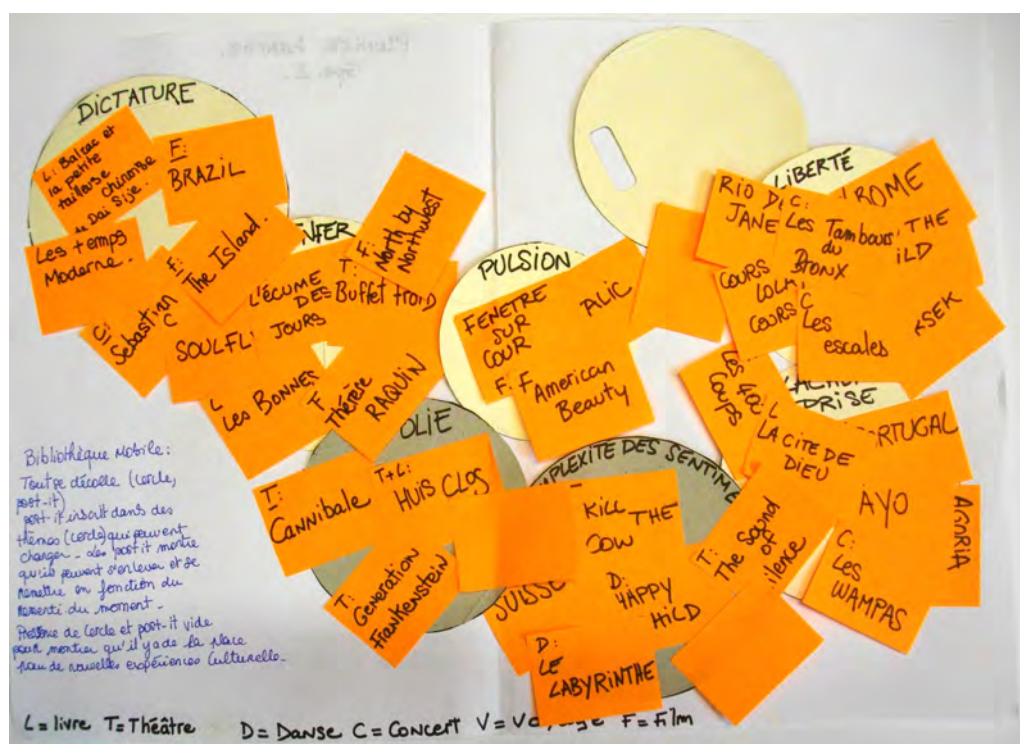 DICTATURE
L: Balzac et
la petite
tailleuse
chinoise
Dai Sijie.
F:
BRAZIL
Les temps
Moderne.
F:
The Island.
Sebastian
C
SOULFLI
ENFER
L'ÉCUME
DES
JOURS
F:
North by
Northwest
T:
Buffet froid
L
Les BONNES
F
Thérèse
RAQUIN
PULSION
FENETRE
SUR
COUR
F:
ALIC
F
American
Beauty
LIBERTÉ
RIO D
JANE
ROME
C:
Les Tambours
du
BRONX
THE
ILD
COURS
LOLA
COURS
C
Les
escales
ASEK
Les 400
Coups
PRISE
L
LA CITE DE
DIEU
RTUGAL
AYO
AGORIA
C:
Les
WAMPAS
OLIE
T:
Cannibale
T+L:
HUIS CLOS
T:
Generation
Frankenstein
MPLEXITE DES SENTIME
KILL THE
COW
D:
HAPPY
HILD
SUISSE
D:
LE
LABYRINTHE
T:
The Sound
of
ilence
Bibliothèque Mobile:
Tout se décolle (cercle,
post-it)
post-it inscrit dans des
thèmes (cercle) qui peuvent
changer - Les post it montre
qu'ils peuvent s'enlever et se
remettre en fonction du
ressenti du moment -
Présence de cercle et post-it vide
pour montrer qu'il y a de la place
pour de nouvelles expériences culturelle -
L = livre T = Théâtre D = Danse C = Concert V = Vo age F = Film